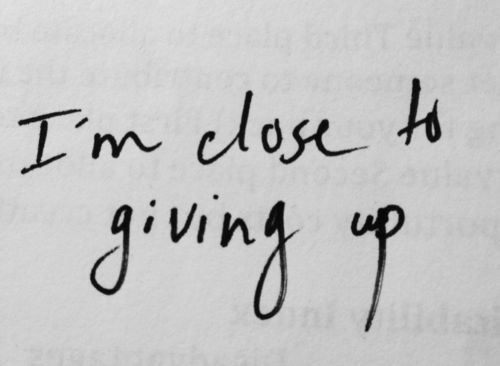 I'm close to
giving up